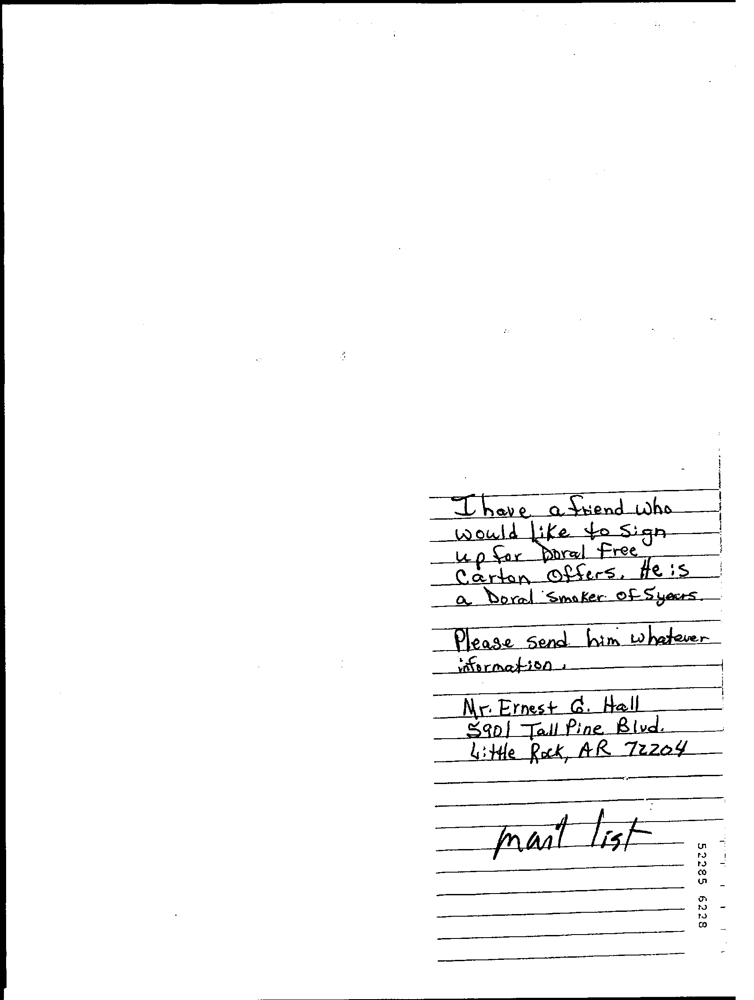 I have a friend who
would like to sign
up for Doral Free
Carton Offers. He is
a Doral smoker of 5 years.
Please send him whatever
information.
Mr. Ernest G. Hall
5901 Tall Pine Blvd.
Little Rock, AR 72204
mail list
52285 6228